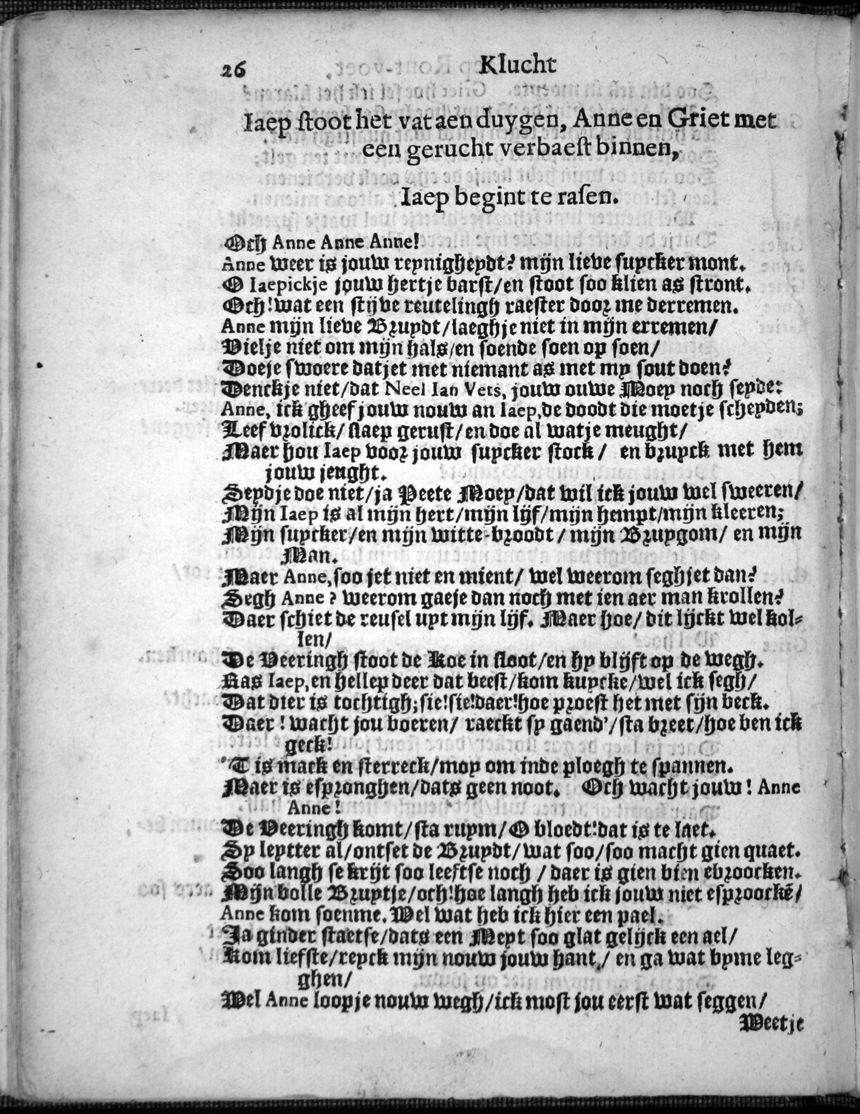 26 Klucht
Iaep stoot het vat aen duygen, Anne en Griet met
een gerucht verbaest binnen,
Iaep begint te rasen.
Och Anne Anne Anne!
Anne weer is jouw reynigheydt? mijn lieve suycker mont.
O Iaepickje jouw hertje barst/en stoot soo klien as stront.
Och! wat een stijve reutelingh raester door me derremen.
Anne mijn lieve Bruydt/laeghje niet in mijn erremen/
Vielje niet om mijn hals/en soende soen op soen/
Doeje swoere datjet met niemant as met my sout doen?
Denckje niet/dat Neel Ian Vets, jouw ouwe Moey noch seyde:
Anne, ick gheef jouw nouw an Iaep,de doodt die moetje scheyden;
Leef vrolick/ slaep gerust/en doe al watje meught/
Maer hou Iaep voor jouw suycker stock/ en bruyck met hem
jouw jeught.
Seydje doe niet/ja Peete Moey/dat wil ick jouw wel sweeren/
Mijn Iaep is al mijn hert/mijn lijf/mijn hempt/mijn kleeren;
Mijn suycker/en mijn witte-broodt/ mijn Bruygom/ en mijn
Man.
Maer Anne,soo jet niet en mient/ wel weerom seghjet dan?
Segh Anne? weerom gaeje dan noch met ien aer man krollen?
Daer schiet de reusel uyt mijn lijf. Maer hoe/ dit lijckt wel kol-
len/
De Veeringh stoot de Koe in sloot/en hy blijft op de wegh.
Ras Iaep,en hellep deer dat beest/kom kuycke/wel ick segh/
Dat dier is tochtigh;sie!sie!daer!hoe proest het met sijn beck.
Daer! wacht jou boeren/ raeckt sy gaend'/sta breet/hoe ben ick
geck!
'T is mack en sterreck/moy om inde ploegh te spannen.
Maer is espronghen/dats geen noot. Och wacht jouw! Anne
Anne!
De Veeringh komt/sta ruym/O bloedt!dat is te laet.
Sy leytter al/ontset de Bruydt/wat soo/soo macht gien quaet.
Soo langh se krijt soo leeftse noch/ daer is gien bien ebroocken.
Mijn bolle Bruytje/och!hoe langh heb ick jouw niet esproockē/
Anne kom soenme. Wel wat heb ick hier een pael.
Ja ginder staetse/dats een Meyt soo glat gelijck een ael/
Kom liefste/reyck mijn nouw jouw hant,/ en ga wat byme leg-
ghen/
Wel Anne loopje nouw wegh/ick most jou eerst wat seggen/
Weetje